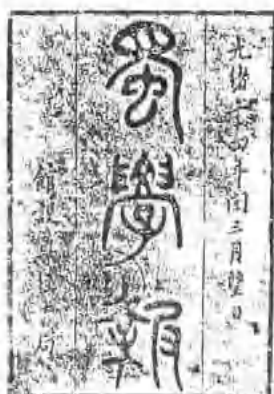 光緒二十四年閏三月望日
蜀學報